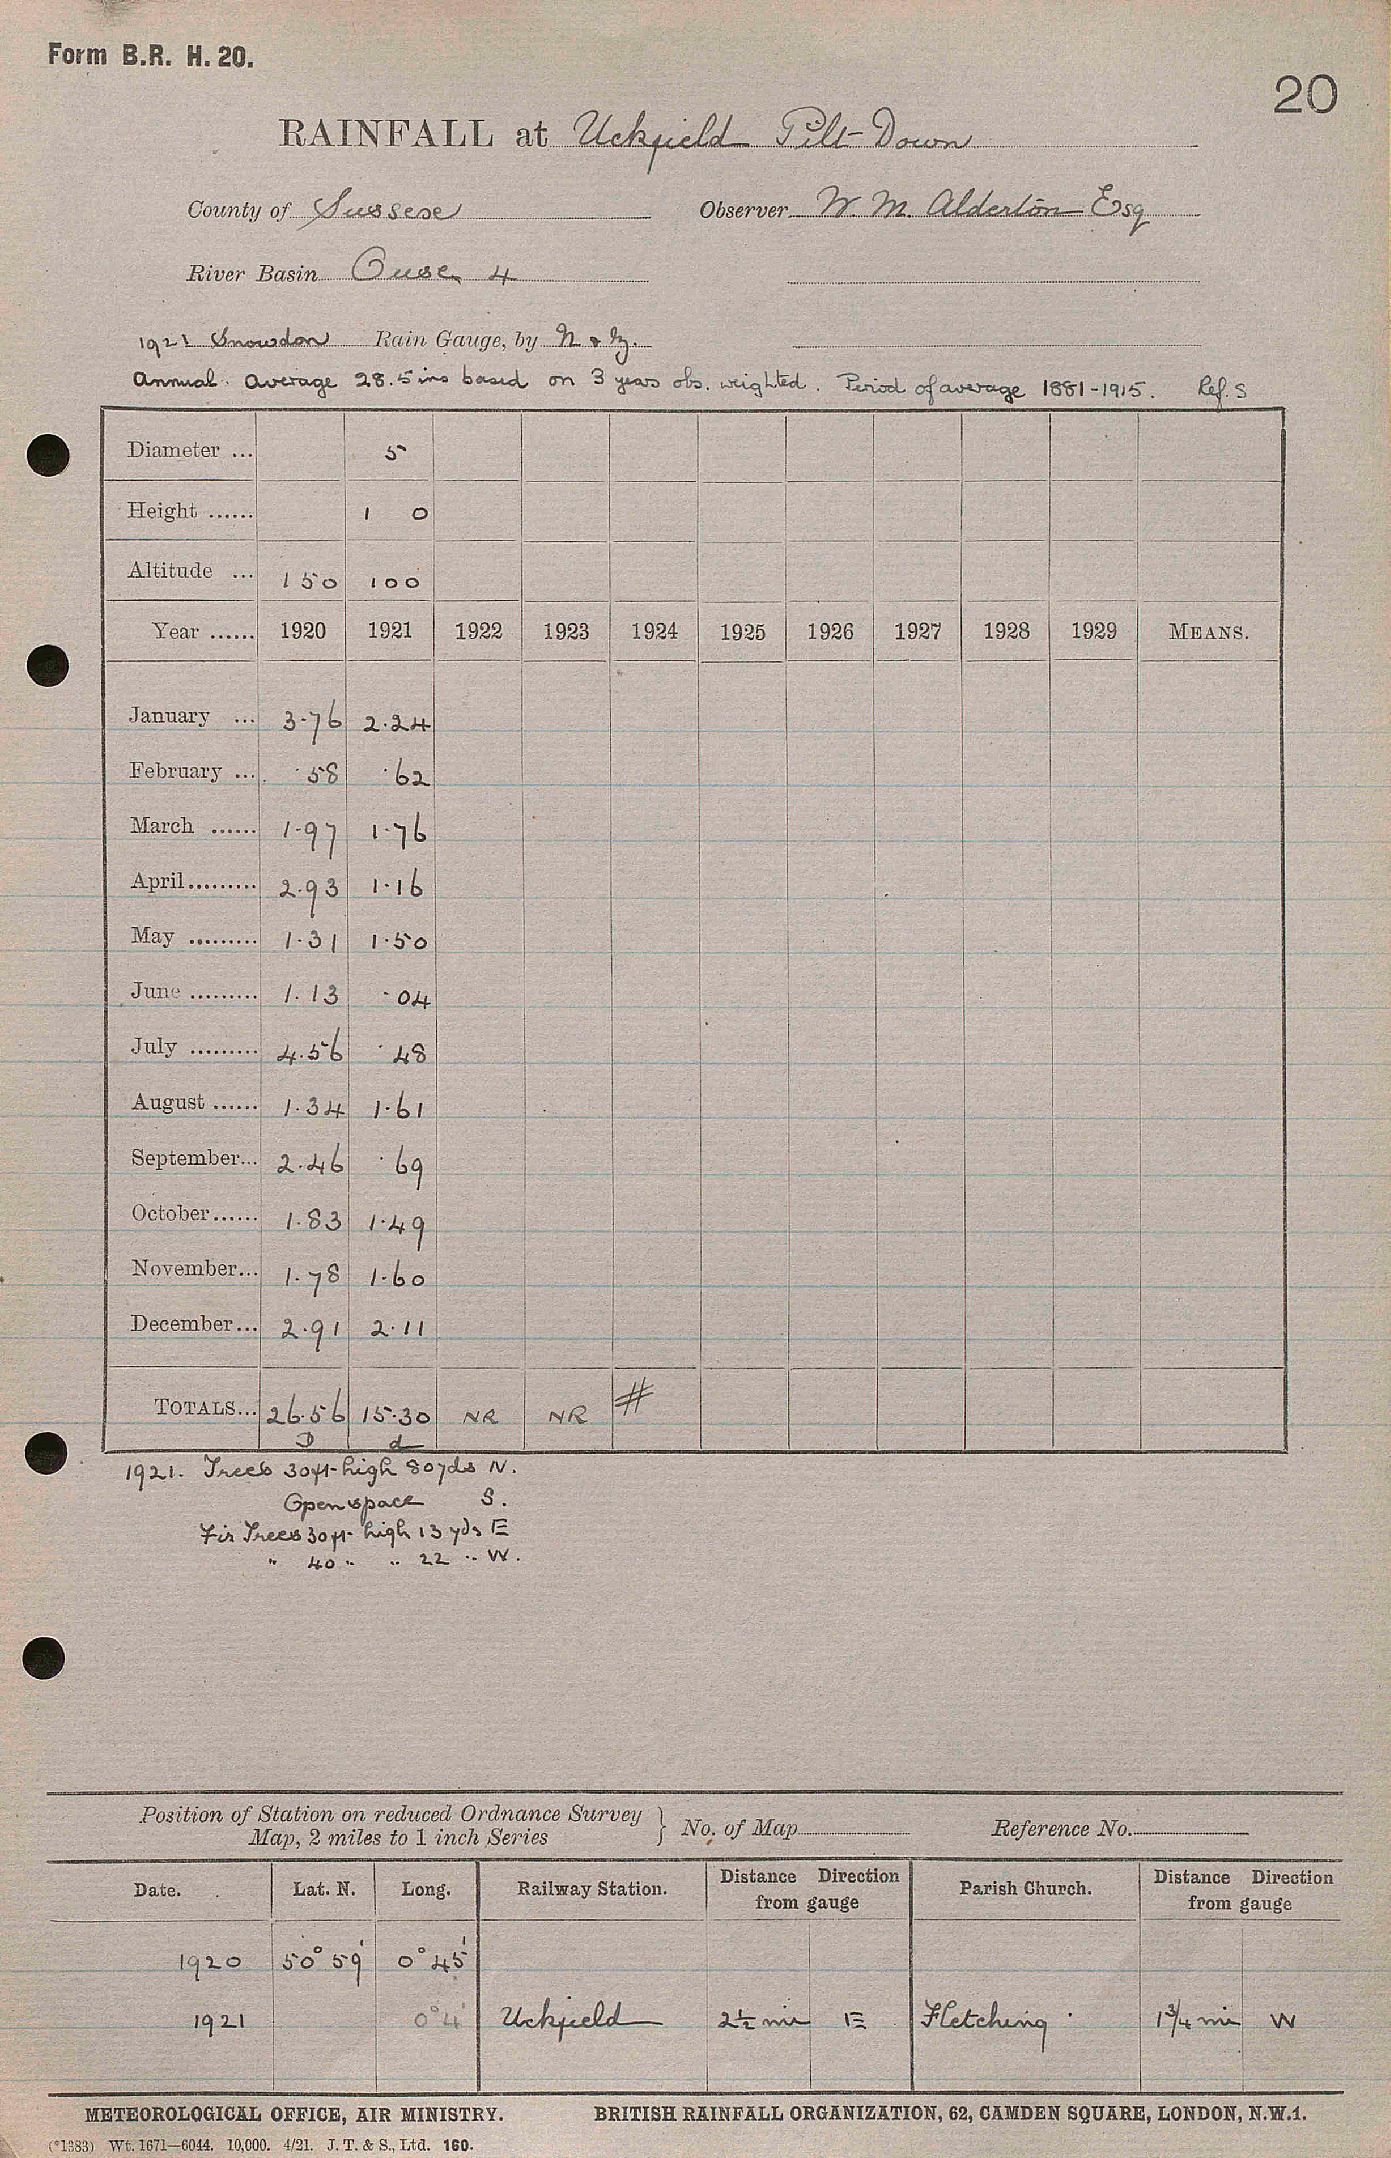 Form B.R. H. 20.
20
RAINFALL at Uckfield Pilt-Down
County of Sussex Observer W. M. Alderton Esq
River Basin Ouse 4
1921 Snowdon Rain Gauge, by N & Z.
Annual Average 28.5 ins based on 3 years obs. weighted. Period of average 1881-1915. Ref. S
Diameter ... 5
Height ...... 1 0
Altitude ... 150 100
Year ...... 1920 1921 1922 1923 1924 1925 1926 1927 1928 1929 MEANS.
January ... 3.76 2.24
February ... .58 .62
March ...... 1.97 1.76
April ......... 2.93 1.16
May ......... 1.31 1.50
June ......... 1.13 .04
July ......... 4.56 .48
August ...... 1.34 1.61
September... 2.46 .69
October...... 1.83 1.49
November... 1.78 1.60
December... 2.91 2.11
TOTALS... 26.56 15.30 NR NR #
D d
1921. Trees 30ft high 80yds N.
Open space S.
Fir Trees 30ft high 13 yds E
" 40 " " 22 " W.
Position of Station on reduced Ordnance Survey
Map, 2 miles to 1 inch Series } No. of Map Reference No.
Date. Lat. N. Long. Railway Station. Distance Direction from gauge Parish Church. Distance Direction from gauge
1920 50° 59' 0° 45'
1921 0° 4' Uckfield 2½ mi E Fletching 1¾ mi W
METEOROLOGICAL OFFICE, AIR MINISTRY. BRITISH RAINFALL ORGANIZATION, 62, CAMDEN SQUARE, LONDON, N.W.1.
(*1383) Wt. 1671—6044. 10,000. 4/21. J. T. & S., Ltd. 160.